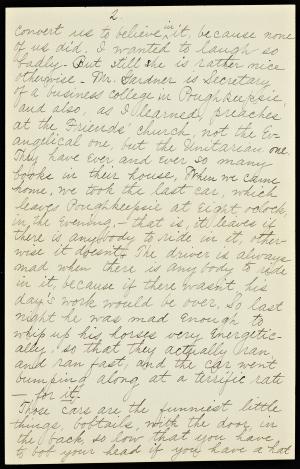 2.
convert us to believe in it, because none
of us did. I wanted to laugh so
badly. But still she is rather nice
otherwise - Mr. Gardner is Secretary
of a business college in Poughkeepsie,
and also, as I learned, preaches
at the Friends' church, not the Ev-
angelical one, but the Unitarian one.
They have ever and ever so many
books in their house. When we came
home, we took the last car, which
leaves Poughkeepsie at eight oclock,
in the evening - that is, it leaves if
there is anybody to ride in it, other-
wise it doesn't. The driver is always
mad when there is any body to ride
in it, because if there wasn't his
day's work would be over. So last
night he was mad enough to
whip up his horses very energetic-
ally, so that they actually ran,
and ran fast, and the car went
bumping along at a terrific rate
— for it.
Those cars are the funniest little
things, bobtails, with the door in
the back so low that you have
to bob your head if you have a hat